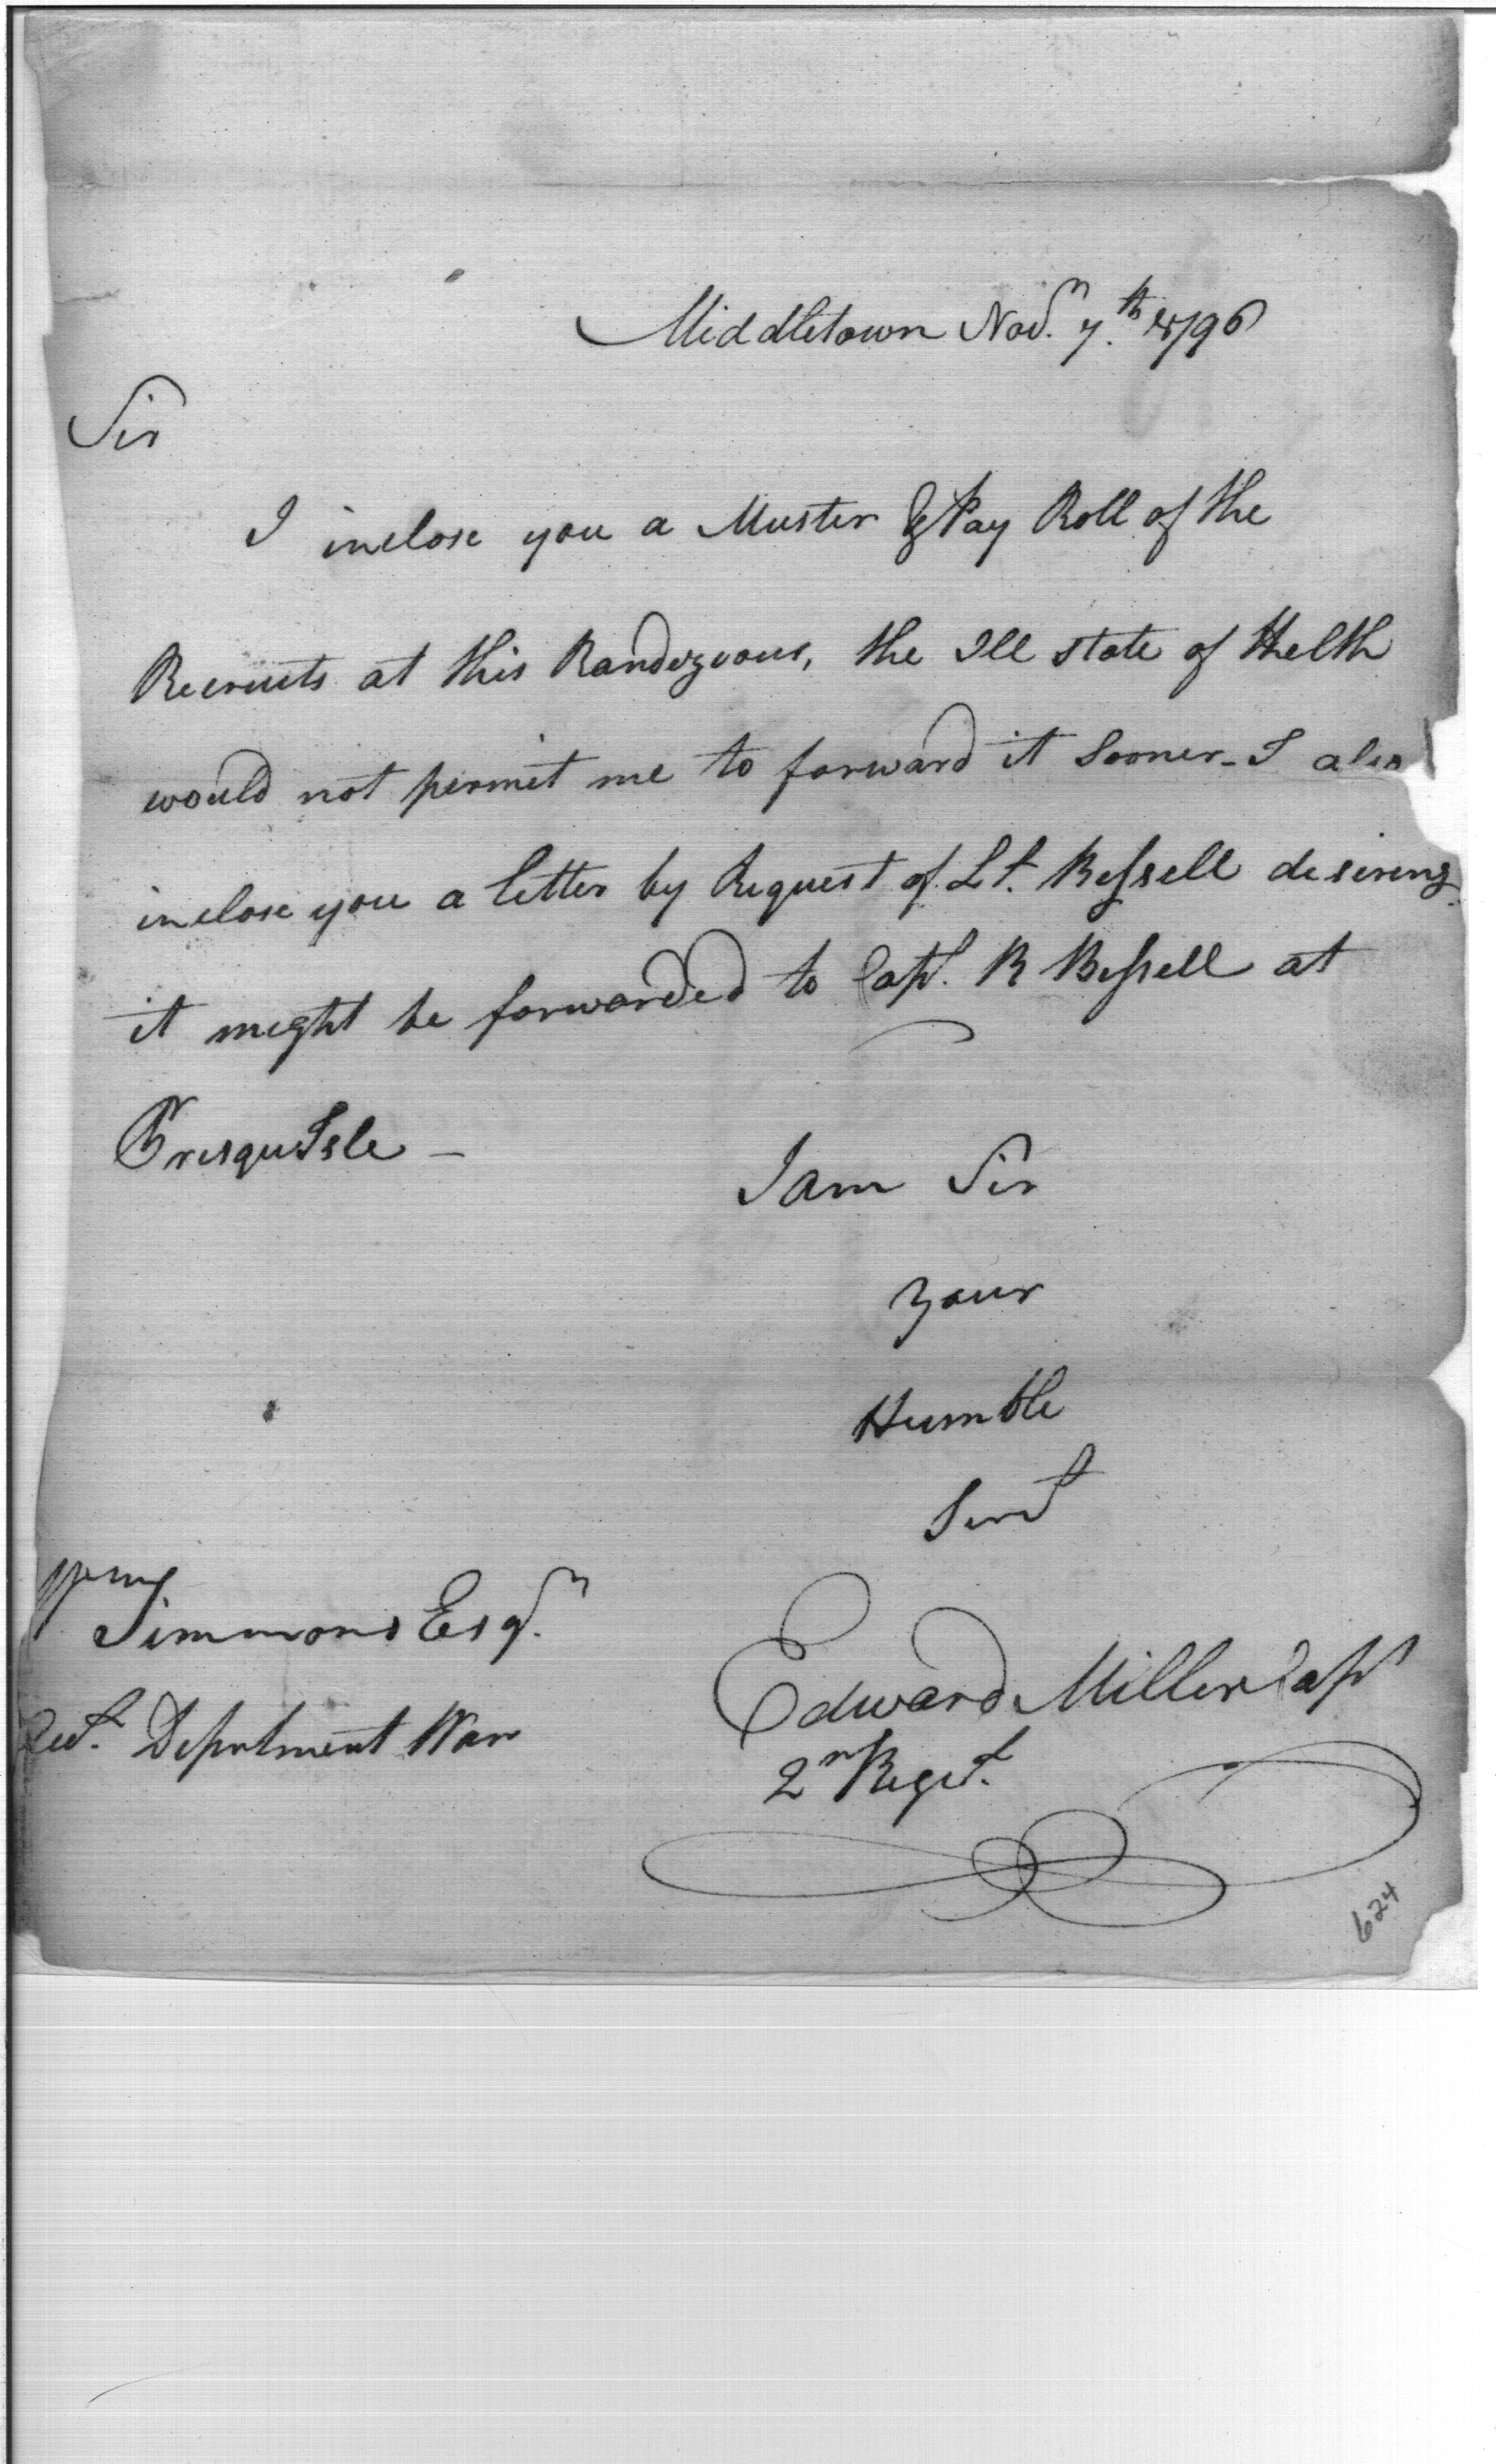 Middletown Nov.r 7.th 1796
Sir
I inclose you a Muster & Pay Roll of the
Recruits at this Randezvous, the Ill state of Helth
would not permit me to forward it Sooner_ I also
inclose you a letter by Request of Lt. Bissell desireing
it might be forwarded to Capt. R Bissell at
Presqu Isle —
I am Sir
Your
Humble
Servt
Simmons Esqr.
Depertment War
Edward Miller Capt
2n Regt.
624